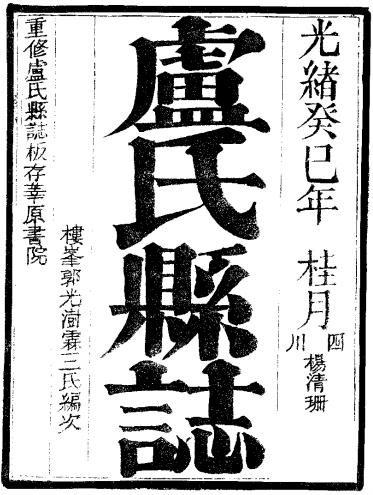 光緒癸巳年　桂月
四川　楊清珊
盧氏縣誌
樓峯郭光澍霖三氏編次
重修盧氏縣誌板存莘原書院